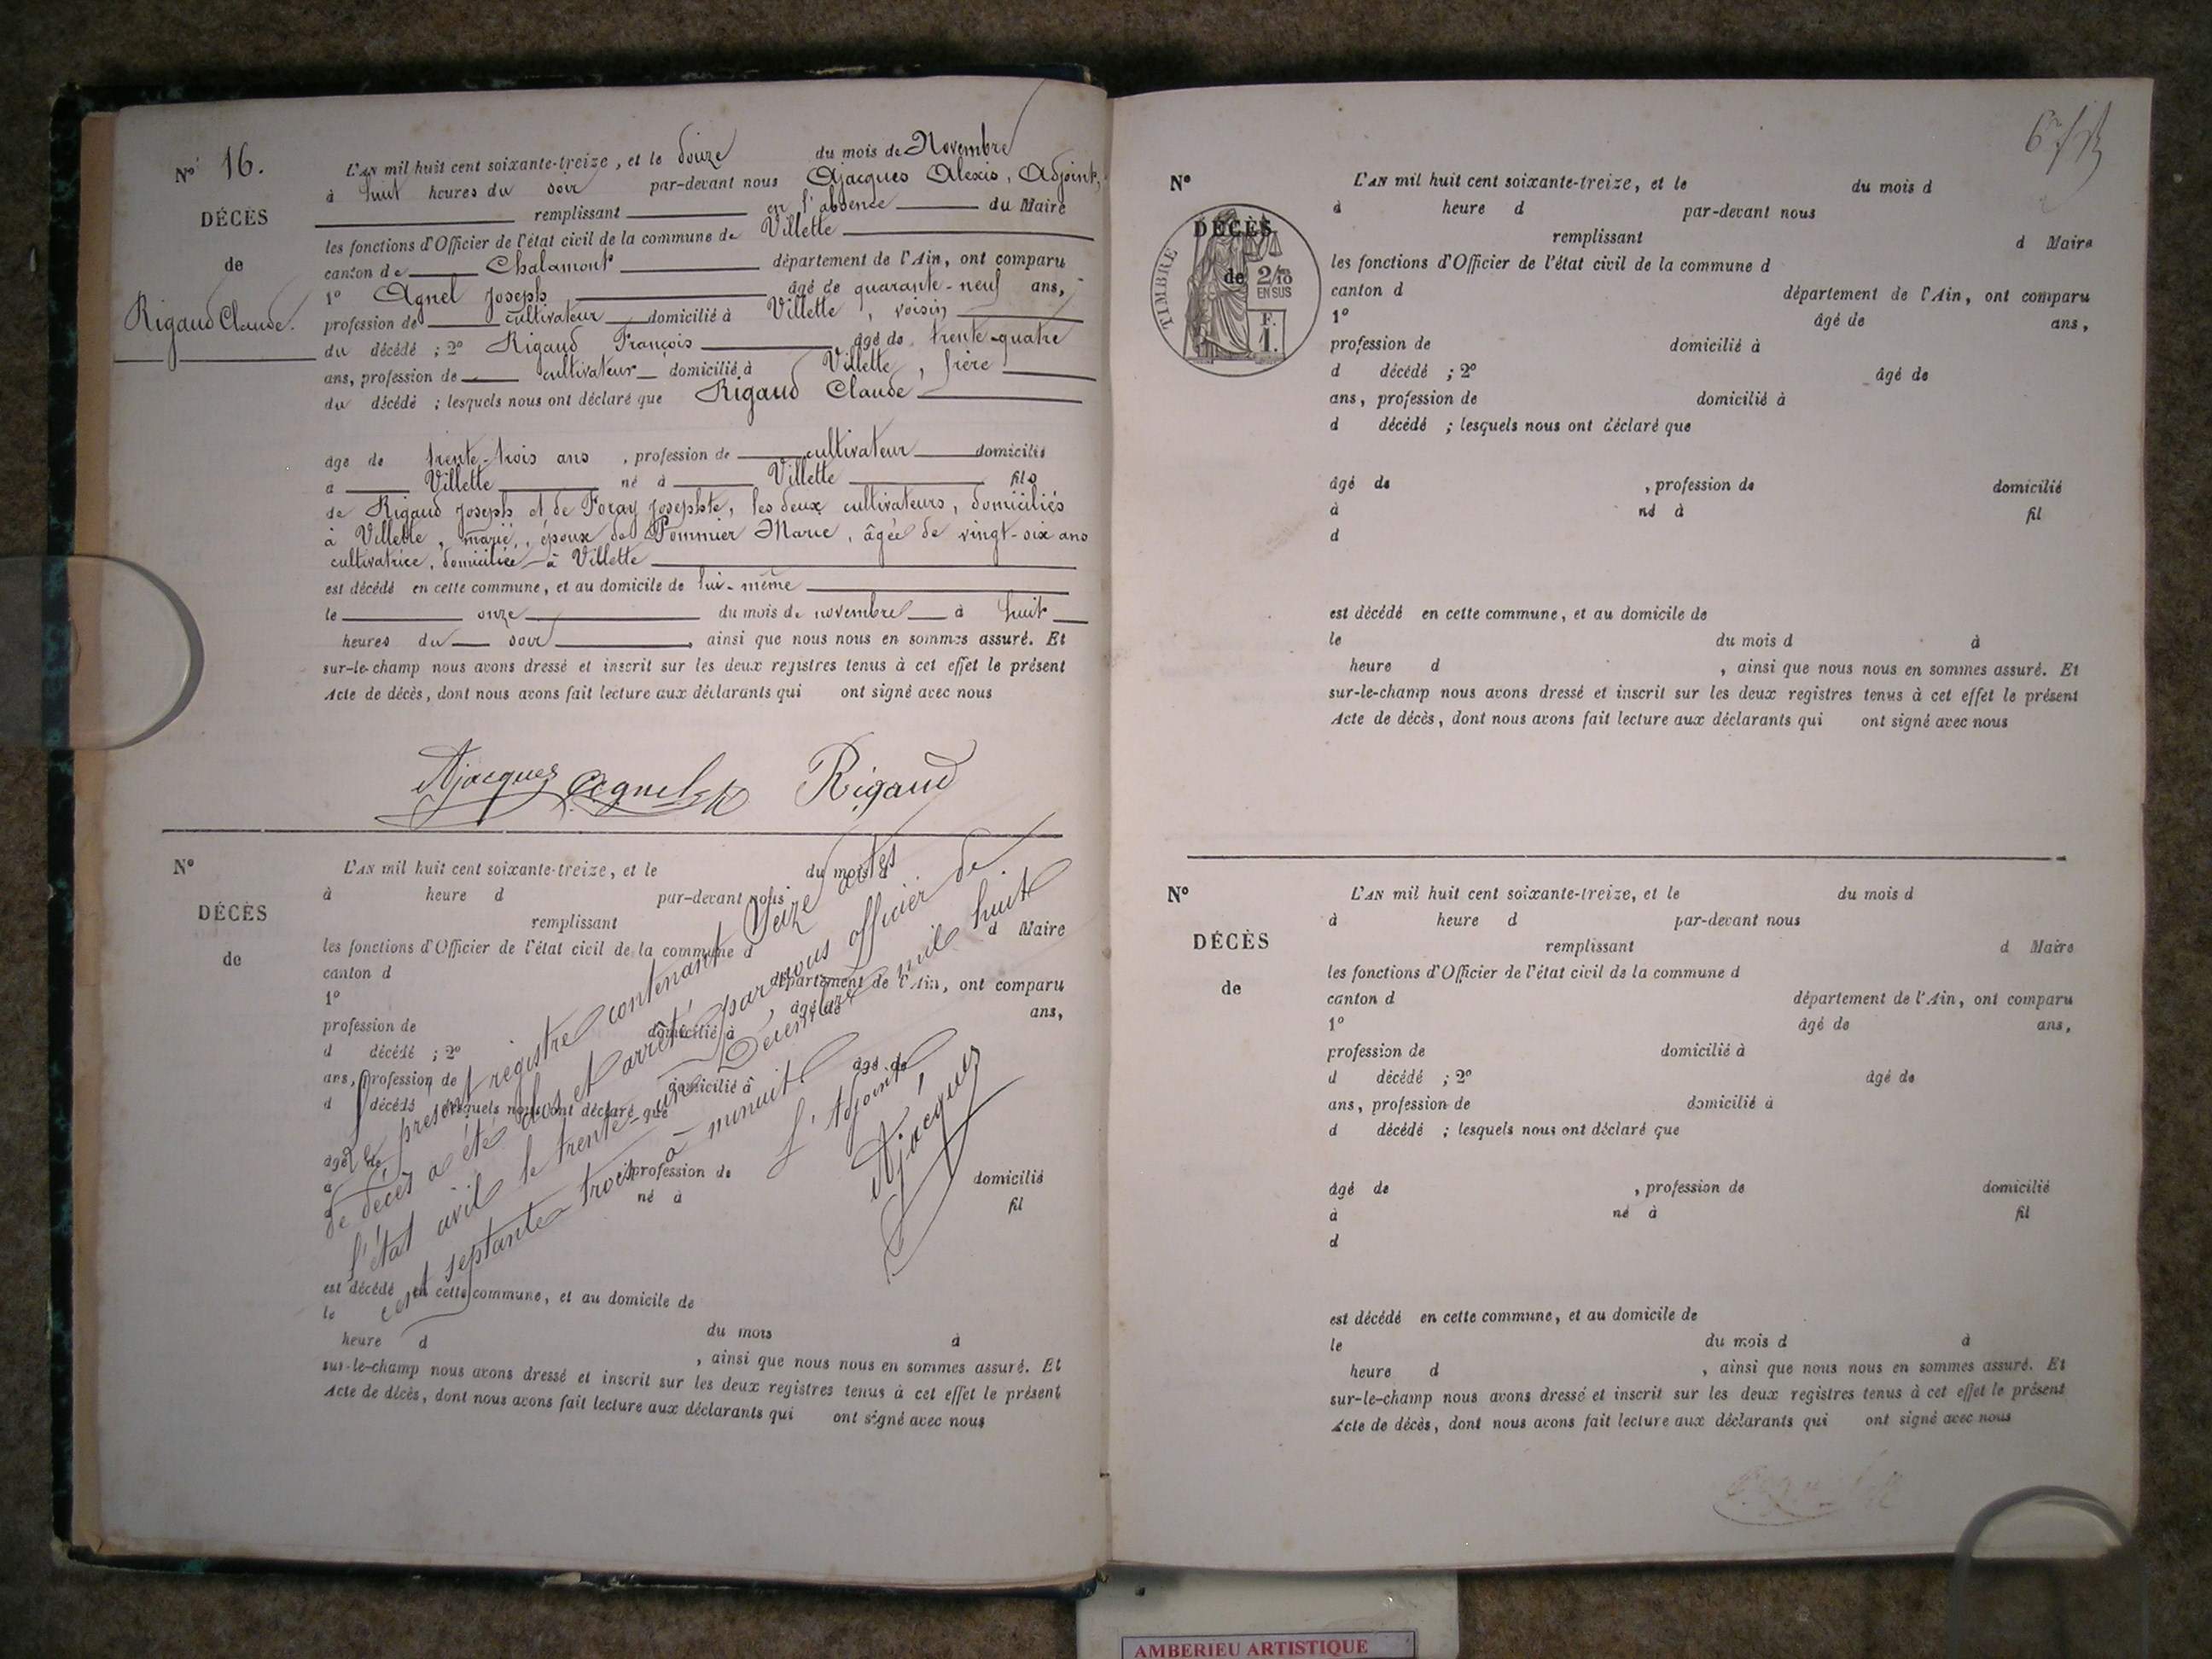 Nº 16.
DÉCÈS
de
Rigaud Claude.
L'AN mil huit cent soixante-treize, et le douze du mois de Novembre
à huit heures du soir par-devant nous Ajacques Alexis, Adjoint,
remplissant en l'absence du Maire
les fonctions d'Officier de l'état civil de la commune de Villette
canton de Chalamont département de l'Ain, ont comparu
1º Agnel Joseph âgé de quarante-neuf ans,
profession de cultivateur domicilié à Villette, voisin
du décédé ; 2º Rigaud François âgé de trente-quatre
ans, profession de cultivateur domicilié à Villette, frère
du décédé ; lesquels nous ont déclaré que Rigaud Claude
âgé de trente-trois ans, profession de cultivateur domicilié
à Villette né à Villette fils
de Rigaud Joseph et de Foray Josephte, les deux cultivateurs, domiciliés
à Villette, marié, époux de Pommier Marie, âgée de vingt-six ans
cultivatrice, domiciliée à Villette
est décédé en cette commune, et au domicile de lui-même
le onze du mois de novembre à huit
heures du soir, ainsi que nous nous en sommes assuré. Et
sur-le-champ nous avons dressé et inscrit sur les deux registres tenus à cet effet le présent
Acte de décès, dont nous avons fait lecture aux déclarants qui ont signé avec nous
Ajacques Agnel Rigaud
Nº
DÉCÈS
de
L'AN mil huit cent soixante-treize, et le du mois d
à heure d par-devant nous
remplissant d Maire
les fonctions d'Officier de l'état civil de la commune d
canton d département de l'Ain, ont comparu
1º âgé de ans,
profession de domicilié à
d décédé ; 2º âgé de
ans, profession de domicilié à
d décédé ; lesquels nous ont déclaré que
âgé de profession de domicilié
à né à fil
est décédé en cette commune, et au domicile de
le du mois à
heure d , ainsi que nous nous en sommes assuré. Et
sur-le-champ nous avons dressé et inscrit sur les deux registres tenus à cet effet le présent
Acte de décès, dont nous avons fait lecture aux déclarants qui ont signé avec nous
Le présent registre contenant Seize actes
de décès a été clos et arrêté par nous officier de
l'état civil le trente-un Décembre mil huit
cent septante trois à minuit
L'Adjoint,
Ajacques
Nº
DÉCÈS
de
TIMBRE
2/10
EN SUS
F.
1.
L'AN mil huit cent soixante-treize, et le du mois d
à heure d par-devant nous
remplissant d Maire
les fonctions d'Officier de l'état civil de la commune d
canton d département de l'Ain, ont comparu
1º âgé de ans,
profession de domicilié à
d décédé ; 2º âgé de
ans, profession de domicilié à
d décédé ; lesquels nous ont déclaré que
âgé de , profession de domicilié
à né à fil
d
est décédé en cette commune, et au domicile de
le du mois d à
heure d , ainsi que nous nous en sommes assuré. Et
sur-le-champ nous avons dressé et inscrit sur les deux registres tenus à cet effet le présent
Acte de décès, dont nous avons fait lecture aux déclarants qui ont signé avec nous
Nº
DÉCÈS
de
L'AN mil huit cent soixante-treize, et le du mois d
à heure d par-devant nous
remplissant d Maire
les fonctions d'Officier de l'état civil de la commune d
canton d département de l'Ain, ont comparu
1º âgé de ans,
profession de domicilié à
d décédé ; 2º âgé de
ans, profession de domicilié à
d décédé ; lesquels nous ont déclaré que
âgé de , profession de domicilié
à né à fil
d
est décédé en cette commune, et au domicile de
le du mois d à
heure d , ainsi que nous nous en sommes assuré. Et
sur-le-champ nous avons dressé et inscrit sur les deux registres tenus à cet effet le présent
Acte de décès, dont nous avons fait lecture aux déclarants qui ont signé avec nous
AMBERIEU ARTISTIQUE